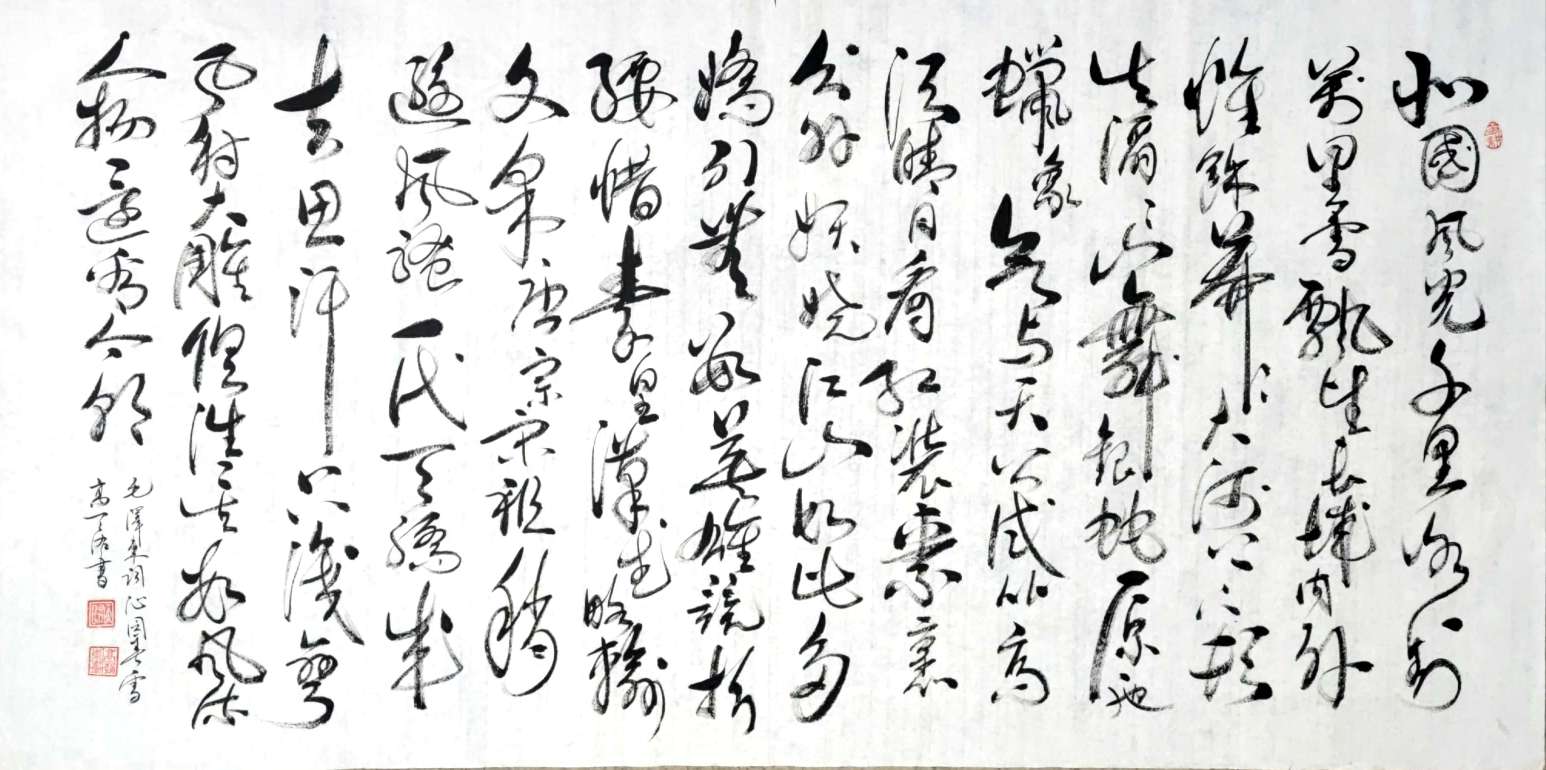 北國風光千里冰封
萬里雪飄望长城内外
惟餘莽〻大河上下頓
失滔〻山舞銀蛇原馳
蠟象欲与天公试比高
须晴日看红装素裹
分外妖娆江山如此多
嬌引無數英雄競折
腰惜秦皇漢武略輸
文采唐宗宋祖稍
遜风骚一代天骄成
吉思汗只识彎
弓射大雕俱往矣数风流
人物還看今朝
毛泽东词沁園春雪